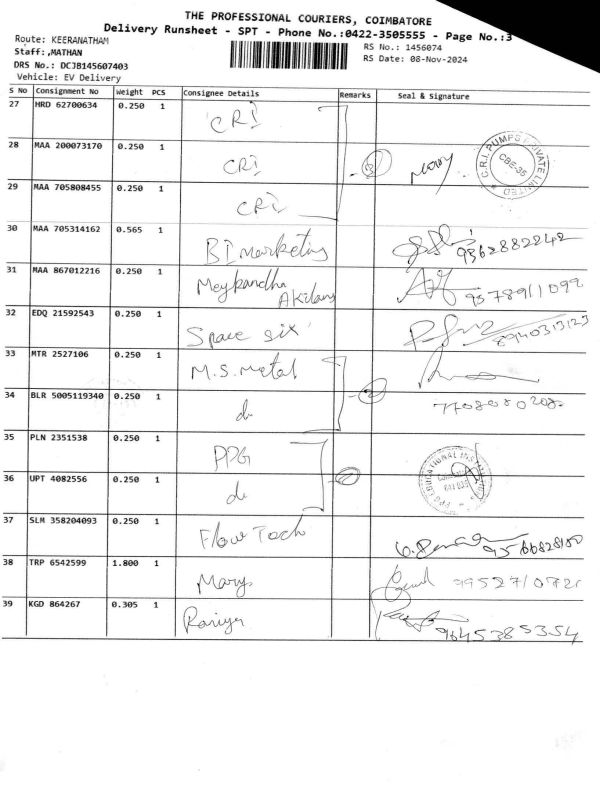 THE PROFESSIONAL COURIERS, COIMBATORE
Delivery Runsheet - SPT - Phone No.:0422-3505555 - Page No.:3
Route: KEERANATHAM
RS No.: 1456074
Staff:,MATHAN
RS Date: 08-Nov-2024
DRS No.: DCJB145607403
Vehicle: EV Delivery
S No Consignment No Weight PCS Consignee Details Remarks Seal & Signature
27 HRD 62700634 0.250 1 CRI
28 MAA 200073170 0.250 1 CRI 3
C.R.I. PUMPS PRIVATE LIMITED CBE-35
29 MAA 705808455 0.250 1 CRI
30 MAA 705314162 0.565 1 BI marketing 9362882242
31 MAA 867012216 0.250 1 Meykandha Akilam
32 EDQ 21592543 0.250 1 Space six 8940313125
33 MTR 2527106 0.250 1 M.S. metal
34 BLR 5005119340 0.250 1 do 2
35 PLN 2351538 0.250 1 PPG
36 UPT 4082556 0.250 1 do 2
PPG EDUCATIONAL
37 SLM 358204093 0.250 1 Flow Tech
38 TRP 6542599 1.800 1 Mary
39 KGD 864267 0.305 1 9645385354